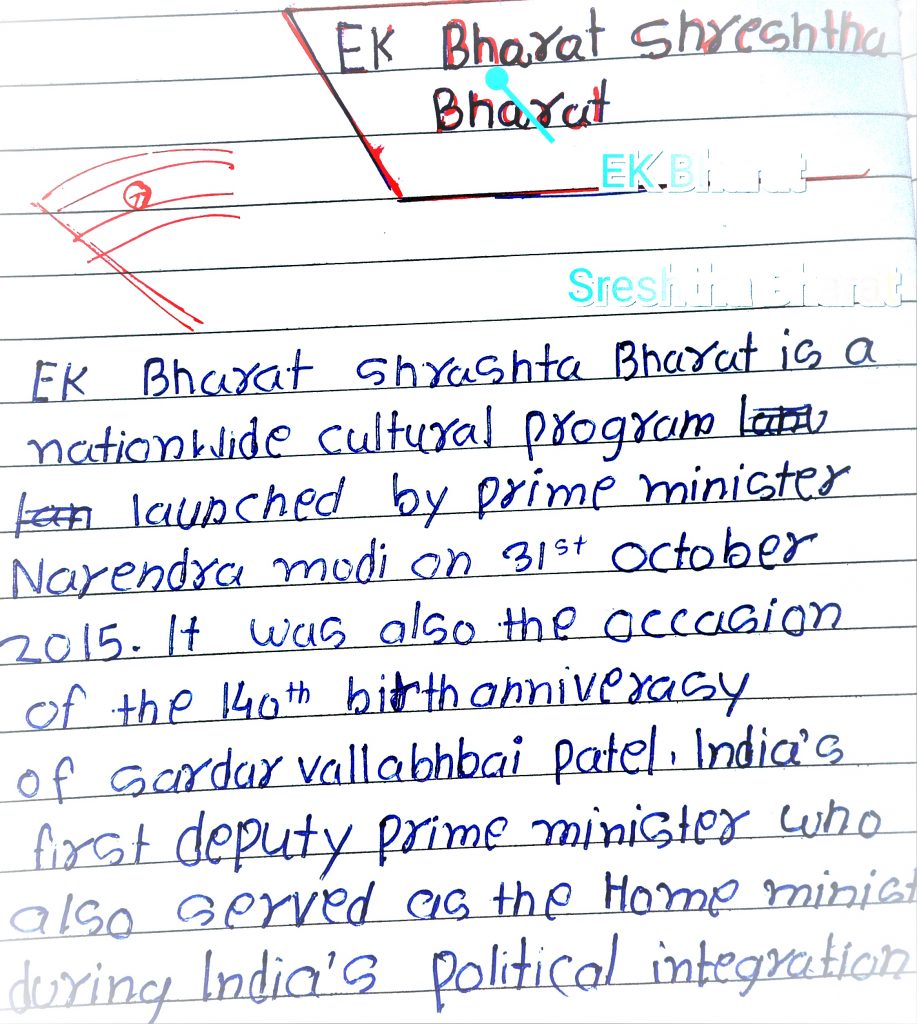 EK Bharat Shreshtha
Bharat
EK Bharat
Sreshtha Bharat
EK Bharat Shrashta Bharat is a
nationwide cultural program
launched by prime minister
Narendra modi on 31st October
2015. It was also the occasion
of the 140th birth anniverasy
of sardar vallabhbai patel, India's
first deputy prime minister who
also served as the Home minist
during India's political integration